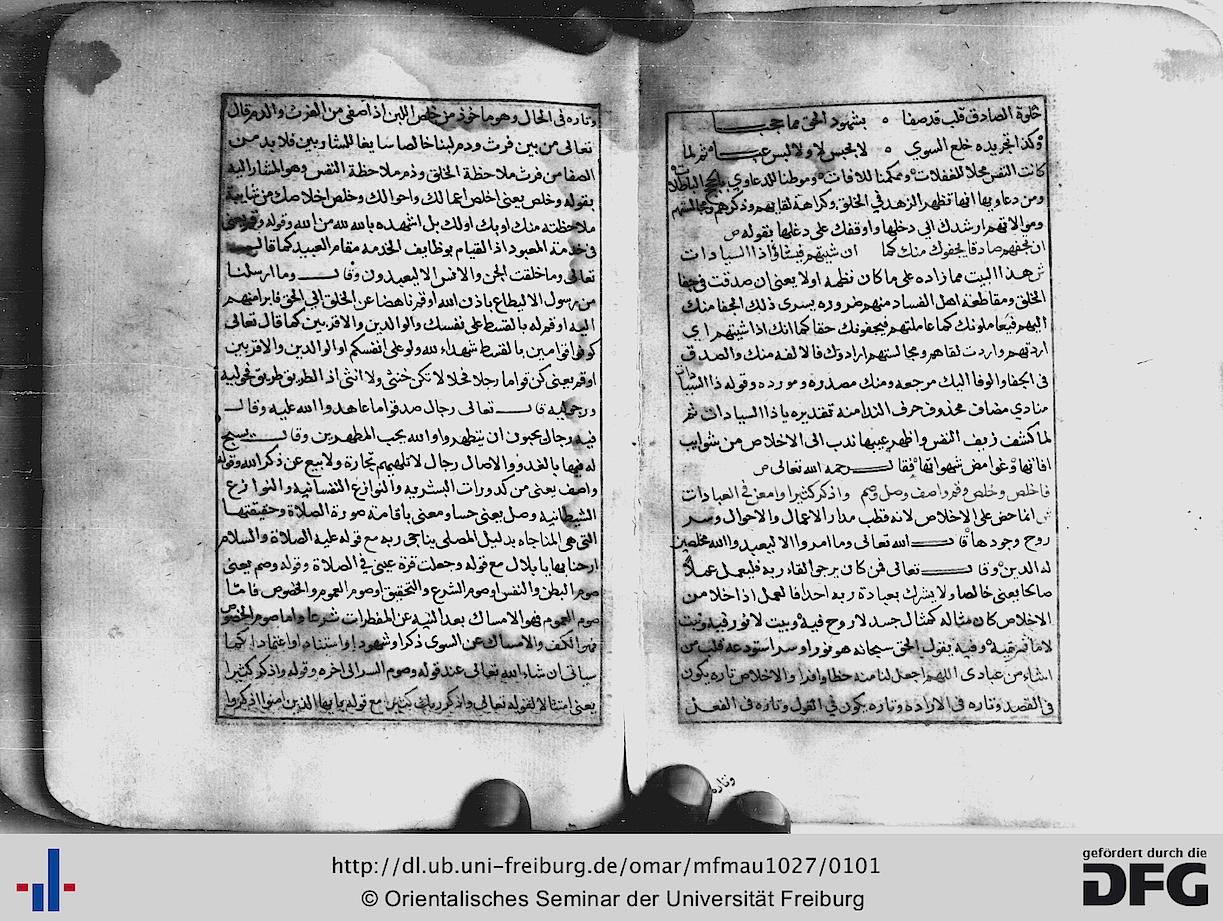 خلوة الصادق قلب قد صفا ه بشهود الحق مما حجبا
وكذا تجريده خلع السوي ه لا بحبس لا ولا لبس عبا ثم لما
كانت النفس محلا للغفلات وممكنا للافات وموطنا للدعاوي
ومن دعاويها انها تظهر الزهد في الخلق وكراهة لقايهم وذكرهم ومجالستهم
وموالاتهم ارشدك الى دخلها واوقفك على دغلها بقوله ص
ان تجفهم صادقا يجفوك منك كما ان شيتهم فيشاؤا ذا السيادات
ش هذا البيت مما زاده على ما كان نظمه اولا يعنى ان صدقت في جفا
الخلق ومقاطعة اهل الفساد منهم ضرورة يسرى ذلك الجفا منك
اليهم فيعاملونك كما عاملتهم فيجفونك حقا كما انك اذا شيتهم اي
اردتهم واردت لقاهم ومجالستهم ارادوك فالالفه منك والصدق
في الجفا والوفا اليك مرجعه ومنك مصدره ومورده وقوله ذا السيادات
منادي مضاف محذوف حرف الندا منه تقديره يا ذا السيادات ثم
لما كشف زيف النفس واظهر عيبها ندب الى الاخلاص من شوايب
افاتها وغوامض شهواتها فقال رحمه الله تعالى ص
فاخلص وخلص وقم واصف وصل وصم واذكر كثيرا وامعن في العبادات
ش انما حض على الاخلاص لانه قطب مدار الاعمال والاحوال وسر
روح وجودها قال الله تعالى وما امروا الا ليعبدوا الله مخلصين
له الدين وقال تعالى فمن كان يرجوا لقاء ربه فليعمل عملا
صالحا يعنى خالصا ولا يشرك بعبادة ربه احدا فالعمل اذا خلا من
الاخلاص كان مثاله كمثال جسد لا روح فيه وبيت لا نور فيه ونبت
لا ماء فيه وفيه يقول الحق سبحانه هو نور او سر استودعه قلب من
اشاء من عبادى اللهم اجعل لنا منه حظا وافرا والاخلاص تارة يكون
في القصد وتارة في الارادة وتارة يكون في القول وتارة في الفعل
وتارة
وتارة في الحال وهو ماخوذ من خلص اللبن اذا صفى من الفرث والدم قال
تعالى من بين فرث ودم لبنا خالصا سايغا للشاربين فلا بد من
الصفا من فرث ملاحظة الخلق ودم ملاحظة النفس وهو المشار اليه
بقوله وخلص يعنى اخلص اعمالك واحوالك وخلص اخلاصك من شايبة
ملاحظته منك او بك او لك بل اشهده بالله لله من الله وقوله وقم
في خدمة المعبود اذ القيام بوظايف الخدمه مقام العبيد كما قال
تعالى وما خلقت الجن والانس الا ليعبدون وقال وما ارسلنا
من رسول الا ليطاع باذن الله او قم ناهضا عن الخلق الي الحق فابرا منهم
اليه او قم له بالقسط على نفسك والوالدين والاقربين كما قال تعالى
كونوا قوامين بالقسط شهداء لله ولو على انفسكم او الوالدين والاقربين
او قم يعنى كن قواما رجلا فحلا لا تكن خنثى ولا انثى اذ الطريق طريق فحوليه
ورجوليه قال تعالى رجال صدقوا ما عاهدوا الله عليه وقال
فيه رجال يحبون ان يتطهروا والله يحب المطهرين وقال يسبح
له فيها بالغدو والاصال رجال لا تلهيهم تجارة ولا بيع عن ذكر الله وقوله
واصف يعنى من كدورات البشريه والنوازع النفسانيه والنوازع
الشيطانيه وصل يعنى حسا ومعنى باقامة صورة الصلاة وحقيقتها
التي هي المناجاه بدليل المصلي يناجي ربه مع قوله عليه الصلاة والسلام
ارحنا بها يا بلال مع قوله وجعلت قرة عينى في الصلاة وقوله وصم يعنى
صوم البطن والنفس او صوم الشرع والتحقيق او صوم العموم والخصوص فاما
صوم العموم فهو الامساك بعد النيه عن المفطرات شرعا واما صوم الخصوص
فهو الكف والامساك عن السوى ذكرا وشهودا واستنادا واعتمادا كما
سياتى ان شاء الله تعالى عند قوله وصوم السر الى اخره وقوله واذكر كثيرا
يعنى امتثالا لقوله تعالى واذكر ربك كثيرا مع قوله يا ايها الذين امنوا اذكروا
http://dl.ub.uni-freiburg.de/omar/mfmau1027/0101
© Orientalisches Seminar der Universität Freiburg
gefördert durch die
DFG